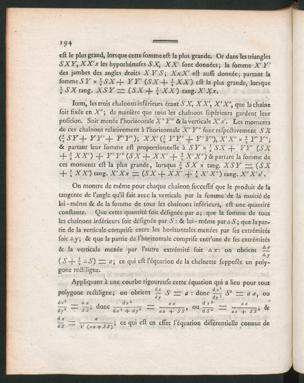 194
est le plus grand, lorsque cette somme est la plus grande. Or dans les triangles
SXY, XX'x les hypothénuses SX, XX' sont données; la somme X'Y'
des jambes des angles droits XYS; XxX' est aussi donnée; partant la
somme SY × ½ SX + YY' (SX + ½ XX') est la plus grande, lorsque
½ SX tang. XSY = (SX + ½ XX') tang. X'Xx.
Item, les trois chainons inférieurs étant SX, XX', X'X'', que la chaine
soit fixée en X''; de manière que tous les chainons supérieurs gardent leur
position. Soit menée l'horizontale X''Y'' & la verticale X'x'. Les momens
de ces chainons relativement à l'horizontale X''Y'' sont respectivement SX
(½ SY + YY' + Y'Y''), XX' (½ YY' + Y'Y''), X'X'' × ½ Y'Y'';
& partant leur somme est proportionnelle à SY × ½ SX + YY' (SX
+ ½ XX') + Y'Y'' (SX + XX' + ½ X'X'') & partant la somme de
ces momens est la plus grande, lorsque ½ SX × tang. XSY = (SX
+ ½ XX') tang. X'Xx = (SX + XX' + ½ X'X'') tang. X''X'x'.
On montre de même pour chaque chainon successif que le produit de la
tangente de l'angle qu'il fait avec la verticale par la somme de la moitié de
lui-même & de la somme de tous les chainons inférieurs, est une quantité
constante. Que cette quantité soit désignée par a; que la somme de tous
les chainons inférieurs soit désignée par S: & lui-même par ΔS; que la par-
tie de la verticale comprise entre les horizontales menées par ses extrémités
soit Δy; & que la partie de l'horizontale comprise entr'une de ses extrémités
& la verticale menée par l'autre extrémité soit Δx: on obtient Δx/Δy
(S + ½ ΔS) = a; ce qui est l'équation de la chainette supposée un poly-
gone rectiligne.
Appliquant à une courbe rigoureuse cette équation qui a lieu pour tout
polygone rectiligne; on obtient dx/dy S = a: donc dx²/dy² S² = aa, ou
dx²/dy² = aa/SS, donc dx²/(dx² + dy²) = aa/(aa + SS), ou dx²/dS² = aa/(aa + SS) &
dx/dS = a/√(aa + SS); ce qui est en effet l'équation différentielle connue de